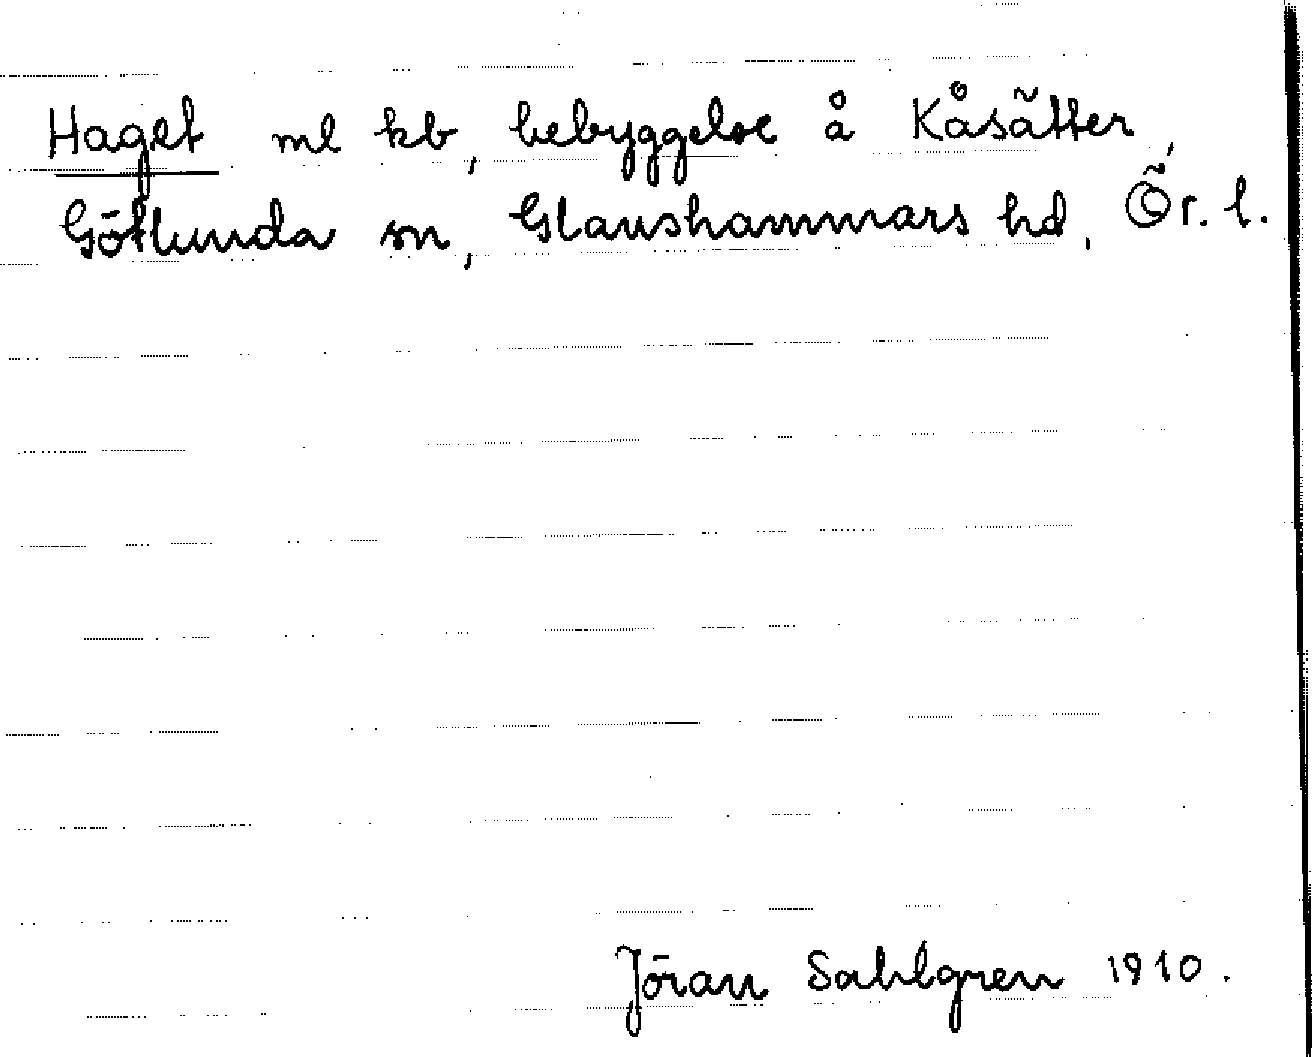 Haget ml kb, bebyggelse å Kåsätter,
Götlunda sn, Glanshammars hd, Ör. l.
Jöran Sahlgren 1910.